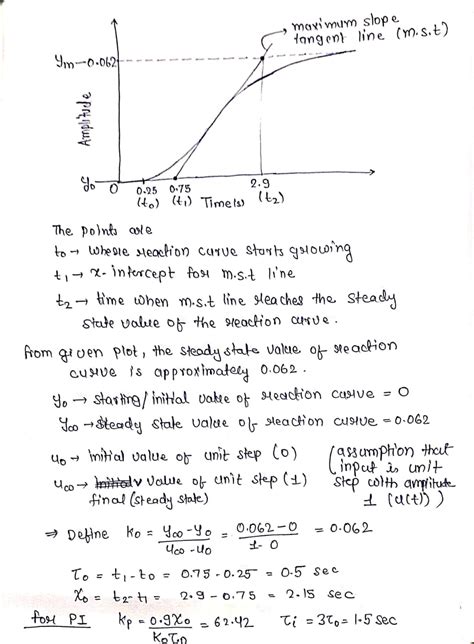 maximum slope
tangent line (m.s.t)
ym-0.062
Amplitude
y₀ 0 0.25 0.75 2.9
(t₀) (t₁) Time(s) (t₂)
The points are
t₀ → where reaction curve starts growing
t₁ → x-intercept for m.s.t line
t₂ → time when m.s.t line reaches the steady
state value of the reaction curve.
from given plot, the steady state value of reaction
curve is approximately 0.062.
y₀ → starting/initial value of reaction curve = 0
y∞ → steady state value of reaction curve = 0.062
u₀ → initial value of unit step (0) (assumption that
input is unit
u∞ → Initial value of unit step (1) step with amplitude
final (steady state) 1 (u(t)))
⇒ Define K₀ = y∞-y₀ / u∞-u₀ = 0.062-0 / 1-0 = 0.062
τ₀ = t₁-t₀ = 0.75-0.25 = 0.5 sec
γ₀ = t₂-t₁ = 2.9-0.75 = 2.15 sec
for PI Kp = 0.9γ₀ / K₀τ₀ = 62.42 τi = 3τ₀ = 1.5 sec